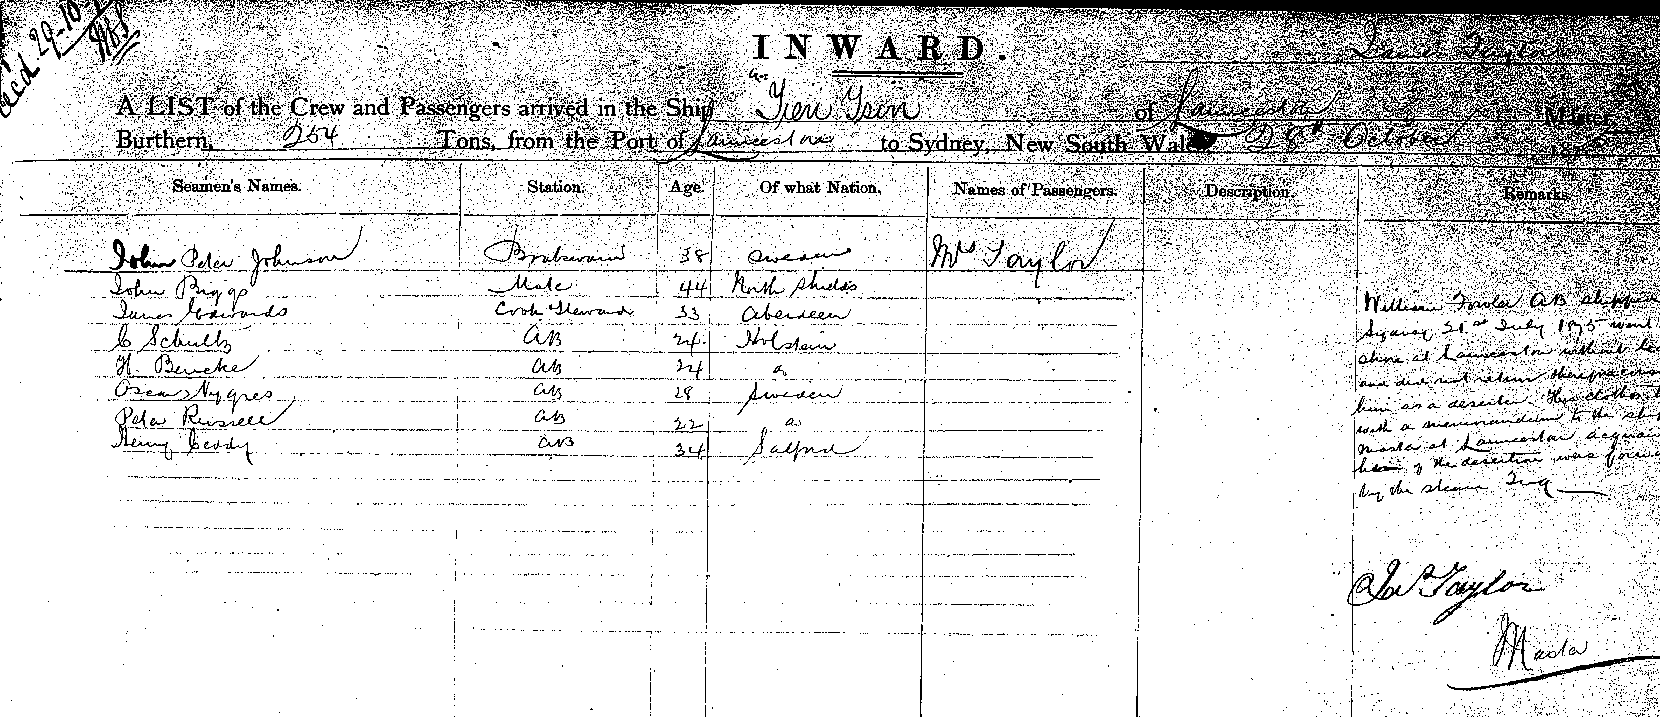 Recd. 29-10-
INWARD.
James Taylor
A LIST of the Crew and Passengers arrived in the Ship Tien Tsin of Launceston Master
Burthern, 254 Tons, from the Port of Launceston to Sydney, New South Wales 28th October
Seamen's Names. Station. Age. Of what Nation. Names of Passengers. Description. Remarks.
John Peter Johnson 38 Sweden Mrs Taylor
John Briggs Mate 44 North Shields
James Edwards Cook Steward 33 Aberdeen
C Schultz AB 24 Holstein
H Bencke AB 24
Oscar Nygres AB 28 Sweden
Peter Russell AB 22
Henry AB 34 Salford
William Fowler AB shipped
Sydney 21st July 1875 went
shore at Launceston without
and did not return therefore
him as a deserter. His clothes
with a memorandum to the
Master at Launceston
of the desertion was
by the steam Tug
Jas Taylor
Master